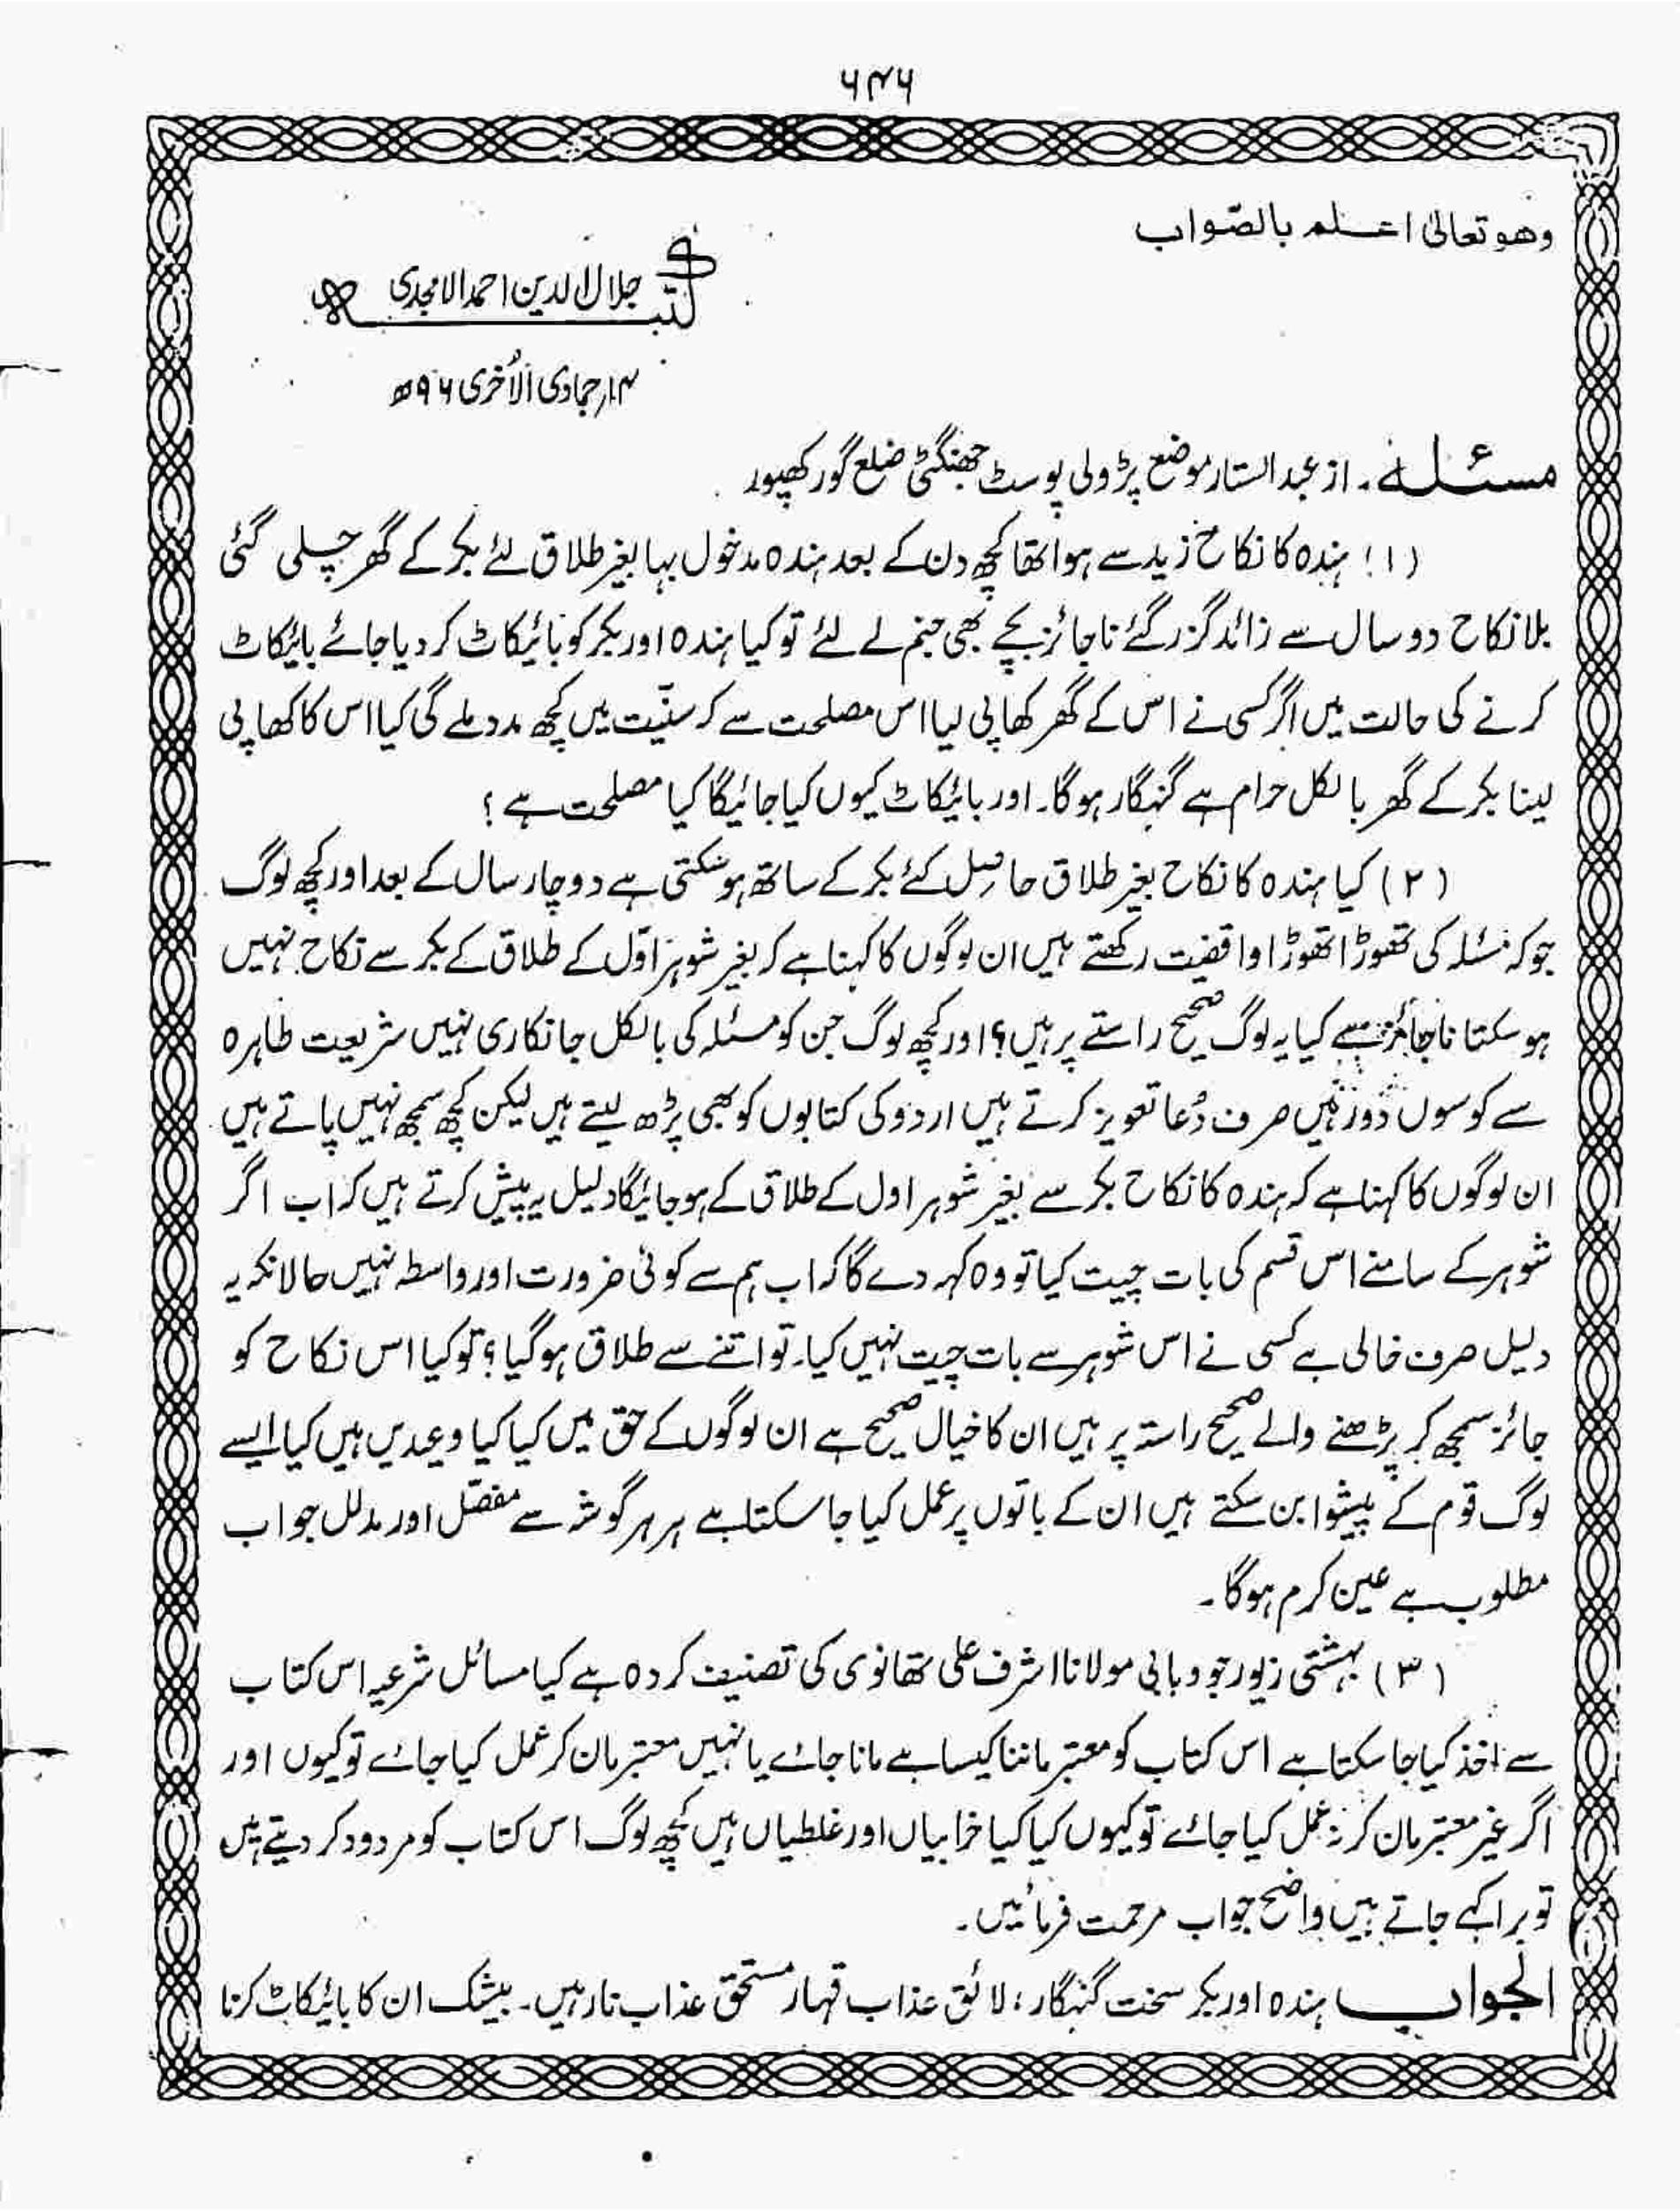 ۶۴۶
وھو تعالیٰ اعلم بالصّواب
کتبہ جلال الدین احمد الامجدی
۱۳؍ جمادی الاُخریٰ ۹۶ھ
مسئلہ ۔ از عبد الستار موضع پڑولی پوسٹ جھنگٹی ضلع گورکھپور
(۱) ہندہ کا نکاح زید سے ہوا تھا کچھ دن کے بعد ہندہ مدخول بہا بغیر طلاق لئے بکر کے گھر چلی گئی
بلا نکاح دو سال سے زائد گزر گئے ناجائز بچے بھی جنم لے لئے تو کیا ہندہ اور بکر کو بائیکاٹ کر دیا جائے بائیکاٹ
کرنے کی حالت میں اگر کسی نے اس کے گھر کھا پی لیا اس مصلحت سے کہ سنّیت میں کچھ مدد ملے گی کیا اس کا کھا پی
لینا بکر کے گھر بالکل حرام ہے گنہگار ہوگا۔ اور بائیکاٹ کیوں کیا جائیگا کیا مصلحت ہے ؟
(۲) کیا ہندہ کا نکاح بغیر طلاق حاصل کئے بکر کے ساتھ ہو سکتی ہے دو چار سال کے بعد اور کچھ لوگ
جو کہ مسئلہ کی تھوڑا تھوڑا واقفیت رکھتے ہیں ان لوگوں کا کہنا ہے کہ بغیر شوہر اوّل کے طلاق کے بکر سے نکاح نہیں
ہو سکتا ناجائز ہے کیا یہ لوگ صحیح راستے پر ہیں؟ اور کچھ لوگ جن کو مسئلہ کی بالکل جانکاری نہیں شریعت طاہرہ
سے کوسوں دُور ہیں صرف دُعا تعویز کرتے ہیں اردو کی کتابوں کو بھی پڑھ لیتے ہیں لیکن کچھ سمجھ نہیں پاتے ہیں
ان لوگوں کا کہنا ہے کہ ہندہ کا نکاح بکر سے بغیر شوہر اول کے طلاق کے ہو جائیگا دلیل یہ پیش کرتے ہیں کہ اب اگر
شوہر کے سامنے اس قسم کی بات چیت کیا تو وہ کہہ دے گا کہ اب ہم سے کوئی ضرورت اور واسطہ نہیں حالانکہ یہ
دلیل صرف خالی ہے کسی نے اس شوہر سے بات چیت نہیں کیا۔ تو اتنے سے طلاق ہوگیا؟ تو کیا اس نکاح کو
جائز سمجھ کر پڑھنے والے صحیح راستہ پر ہیں ان کا خیال صحیح ہے ان لوگوں کے حق میں کیا کیا وعیدیں ہیں کیا ایسے
لوگ قوم کے پیشوا بن سکتے ہیں ان کے باتوں پر عمل کیا جا سکتا ہے ہر ہر گوشہ سے مفصّل اور مدلل جواب
مطلوب ہے عین کرم ہوگا۔
(۳) بہشتی زیور جو وہابی مولانا اشرف علی تھانوی کی تصنیف کردہ ہے کیا مسائل شرعیہ اس کتاب
سے اخذ کیا جا سکتا ہے اس کتاب کو معتبر ماننا کیسا ہے مانا جائے یا نہیں معتبر مان کر عمل کیا جائے تو کیوں اور
اگر غیر معتبر مان کر نہ عمل کیا جائے تو کیوں کیا کیا خرابیاں اور غلطیاں ہیں کچھ لوگ اس کتاب کو مردود کر دیتے ہیں
تو برا کہے جاتے ہیں واضح جواب مرحمت فرمائیں۔
الجواب ہندہ اور بکر سخت گنہگار، لائق عذاب قہار مستحق عذاب نار ہیں۔ بیشک ان کا بائیکاٹ کرنا